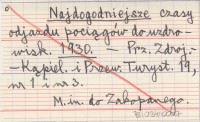 Najdogodniejsze czasy
odjazdu pociągów do uzdro-
wisk. 1930. — Prz. Zdroj.-
-Kąpiel. i Przew. Turyst. 19,
nr 1 i nr 3.
M. in. do Zakopanego.